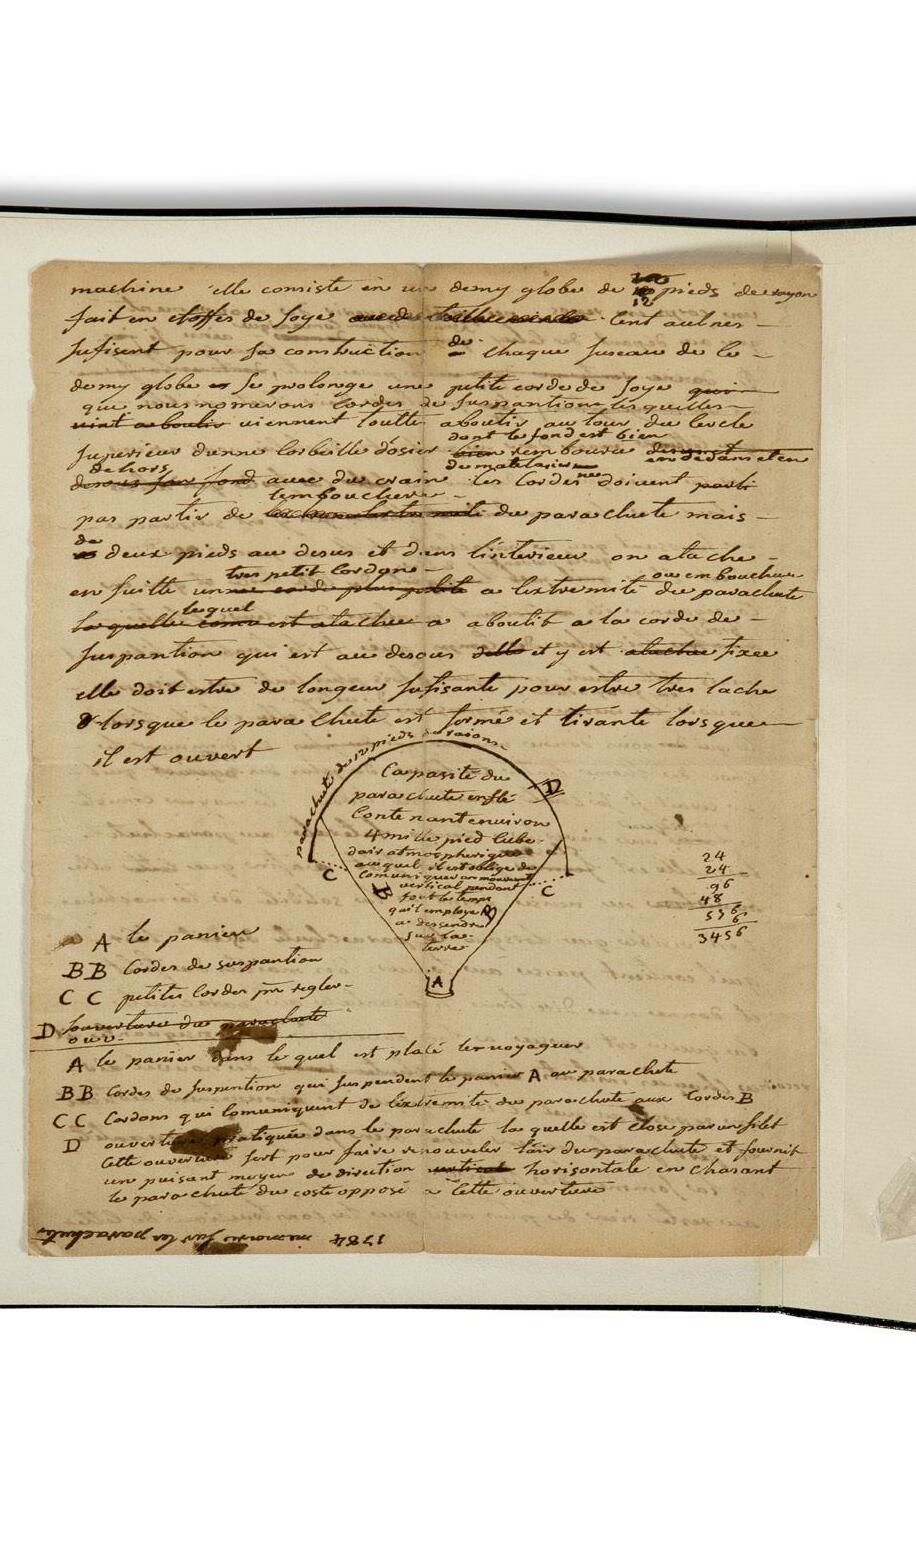 machine elle consiste en un demy globe de 12 pieds de rayon
fait en etoffes de soye cent aulnes
sufisent pour sa construction de chaque fuseau de ce
demy globe se prolonge une petite corde de soye qui
que nous nomerons cordes de suspantion lesquelles
vint aboutir viennent toutte aboutir au tour du cercle
dont le fond est bien
superieur dunne corbeille dosier bien rembourée dessus et en dedans et en
dehors de matelasure
dessous son fond avec du crain les cordes ne doivent parti
lembouchure
pas partir de du parachute mais
de
deux pieds au desus et dans linterieur on atache
tres petit cordone ou embouchure
en suitte une corde plus petite a lextremité du parachute
lequel
la quelle est atachee a aboutit a la corde de
suspantion qui est au desous delle et y est atachee fixee
elle doit estre de longeur sufisante pour estre tres lache
lorsque le para chute est fermé et tirante lorsque
il est ouvert
parachute de 12 pieds de raions
Capasité du
parachute enflé
Contenant environ
4 mille pied cube
dair atmospherique
auquel il est oblige de
comuniquer un mouvement
vertical pendant
tout le temps
quil employe
a desendre
sur la
terre
D
C
C
B
B
A
24
24
96
48
576
6
3456
A le panier
BB Cordes de suspantion
C C petites cordes pr regler
D louverture du parachute
ouv
A le panier dans le quel est placé le voyageur
BB Cordes de suspention qui suspendent le panier A au parachute
CC Cordons qui comuniquent de lextremité du parachute aux cordes B
D ouverture pratiquée dans le parachute la quelle est close par un filet
Cette ouverture sert pour faire renouveler lair du parachute et fournit
un puisant moyen de direction vertical horisontale en chasant
le parachute du costé opposé a cette ouverture
1784 memoire sur les parachutes